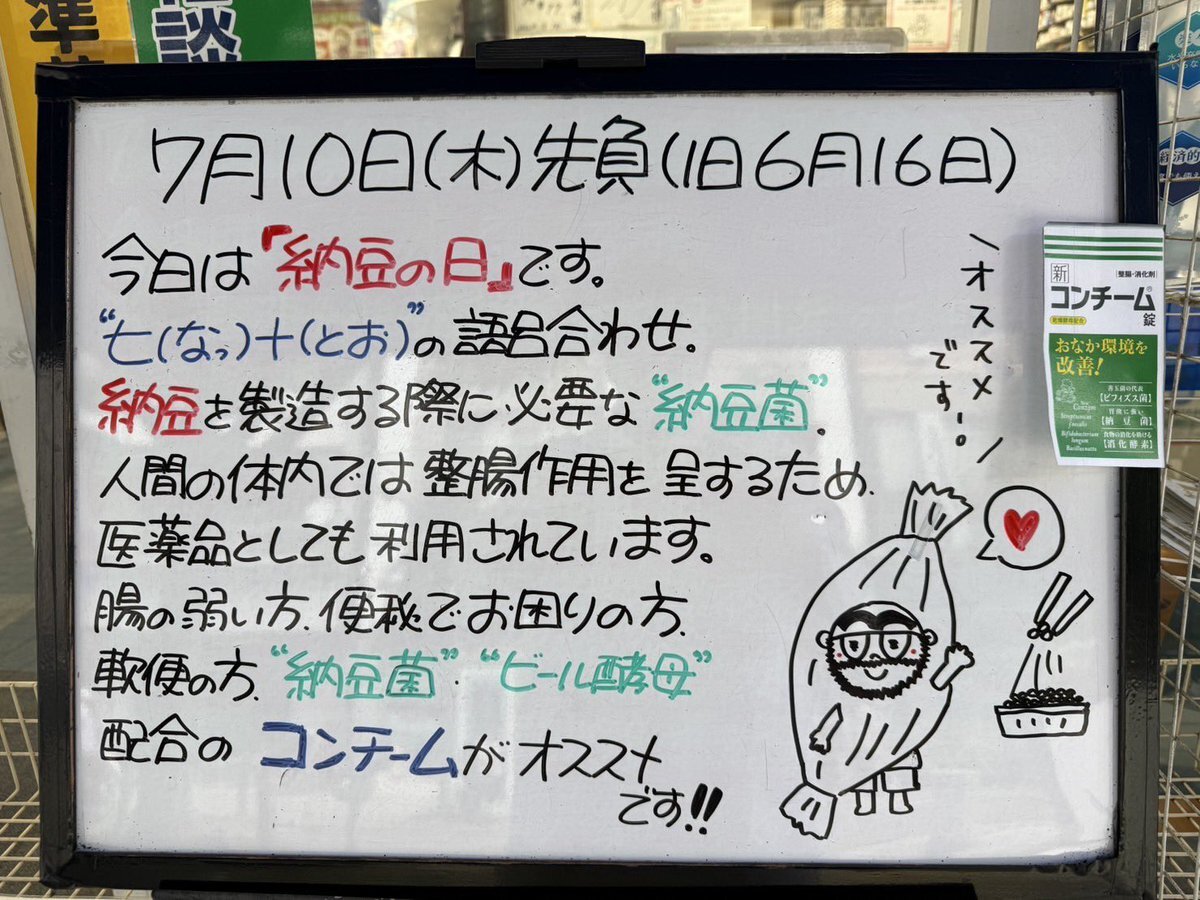 準
談
7月10日(木)先負(旧6月16日)
今日は『納豆の日』です。
“七(なっ)十(とお)”の語呂合わせ。
納豆を製造する際に必要な“納豆菌”。
人間の体内では整腸作用を呈するため、
医薬品としても利用されています。
腸の弱い方、便秘でお困りの方、
軟便の方、“納豆菌”・“ビール酵母”
配合の コンチームがオススメ
です!!
\オススメ
です!。/
新
整腸・消化剤
コンチーム®
錠
乾燥酵母配合
おなか環境を
改善!
善玉菌の代表
【ビフィズス菌】
胃酸に強い
【納豆菌】
食物の消化を助ける
【消化酵素】